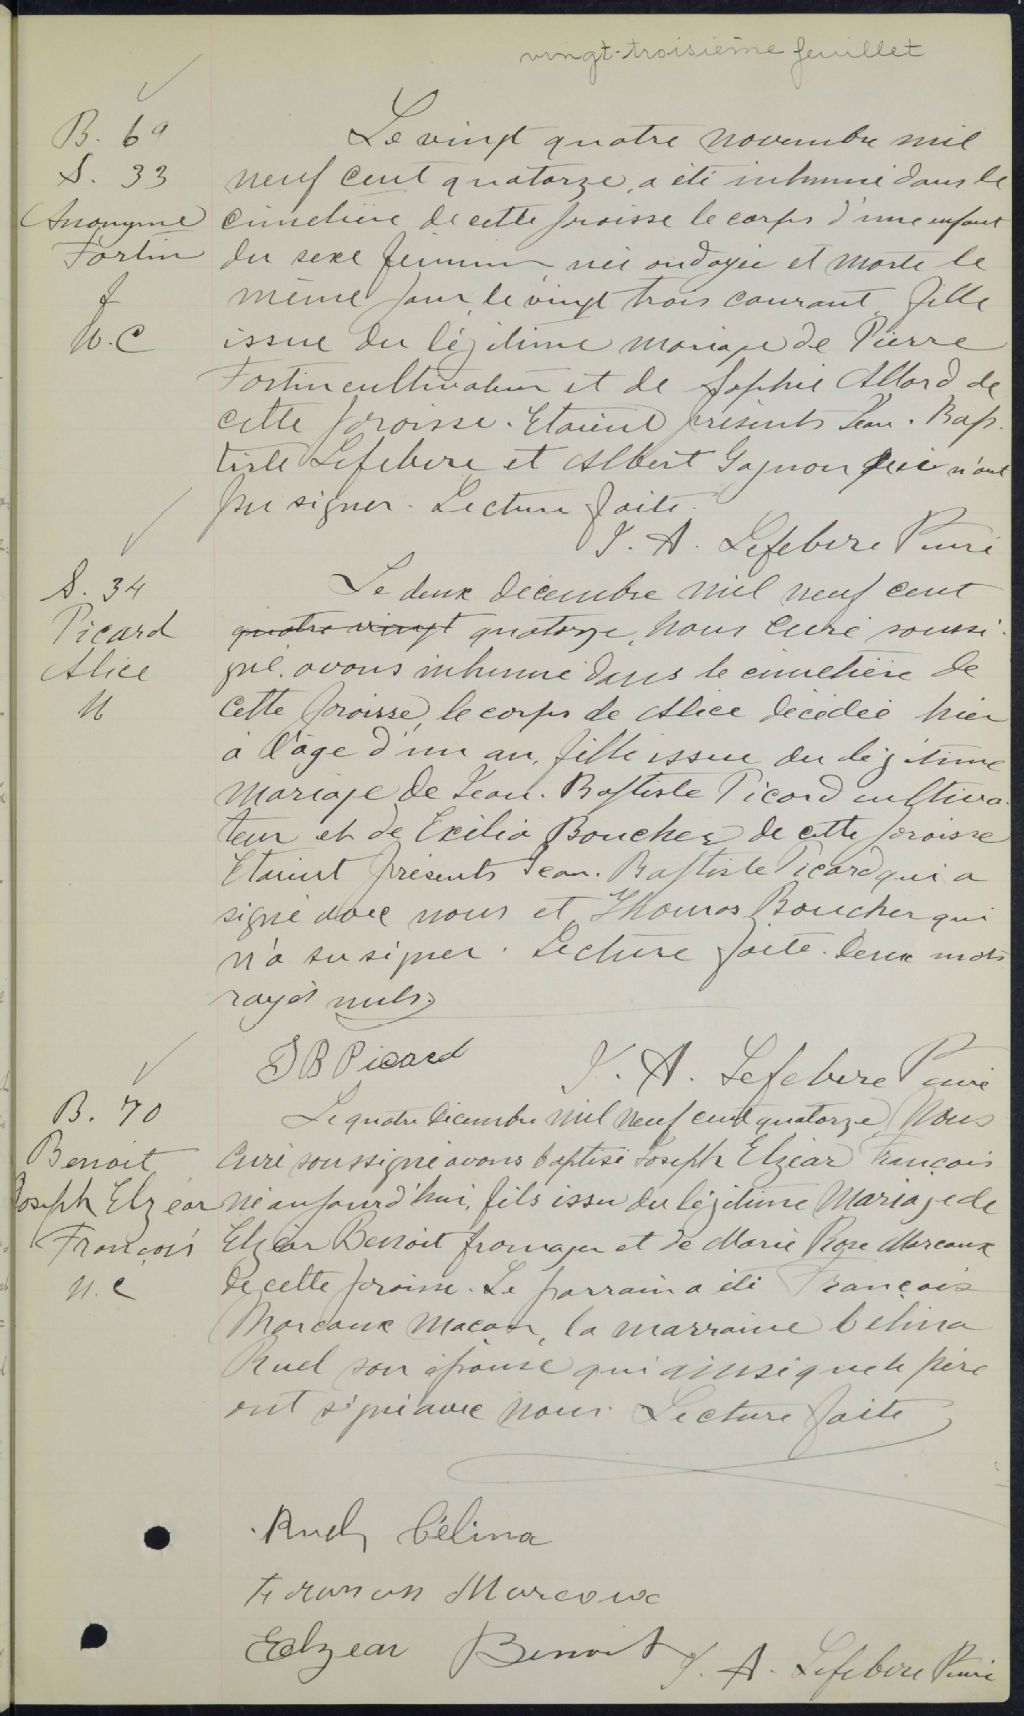 vingt-troisième feuillet
B. 69
S. 33
Anonyme
Fortin
f
N.C
Le vingt quatre novembre mil
neuf cent quatorze, a été inhumé dans le
cimetière de cette paroisse le corps d'une enfant
du sexe féminin, née ondoyée et morte le
même jour, le vingt trois courant, fille
issue du légitime mariage de Pierre
Fortin cultivateur et de Sophie Allard de
cette paroisse. Etaient présents Jean-Bap-
tiste Lefebvre et Albert Gagnon qui n'ont
pu signer. Lecture faite.
J. A. Lefebvre Ptre curé
S. 34
Picard
Alice
N
Le deux décembre mil neuf cent
quatre vingt quatorze, nous curé soussi-
gné, avons inhumé dans le cimetière de
cette paroisse, le corps de Alice décédée hier
à l'âge d'un an, fille issue du légitime
mariage de Jean-Baptiste Picard cultiva-
teur et de Exilia Boucher de cette paroisse
Etaient présents Jean-Baptiste Picard qui a
signé avec nous et Thomas Boucher qui
n'a su signer. Lecture faite. Deux mots
rayés nuls.
J B Picard
J. A. Lefebvre Ptre curé
B. 70
Benoit
Joseph Elzéar
François
N.C
Le quatre décembre mil neuf cent quatorze, Nous
Curé soussigné avons baptisé Joseph Elzéar François
né aujourd'hui, fils issu du légitime Mariage de
Elzéar Benoit fromager et de Marie Rose Marcoux
de cette paroisse. Le parrain a été François
Marcoux maçon, la marraine Célina
Ruel son épouse qui ainsi que le père
ont signé avec nous. Lecture faite
Ruel Célina
Marcoux
Elzear Benoit
J. A. Lefebvre Ptre curé